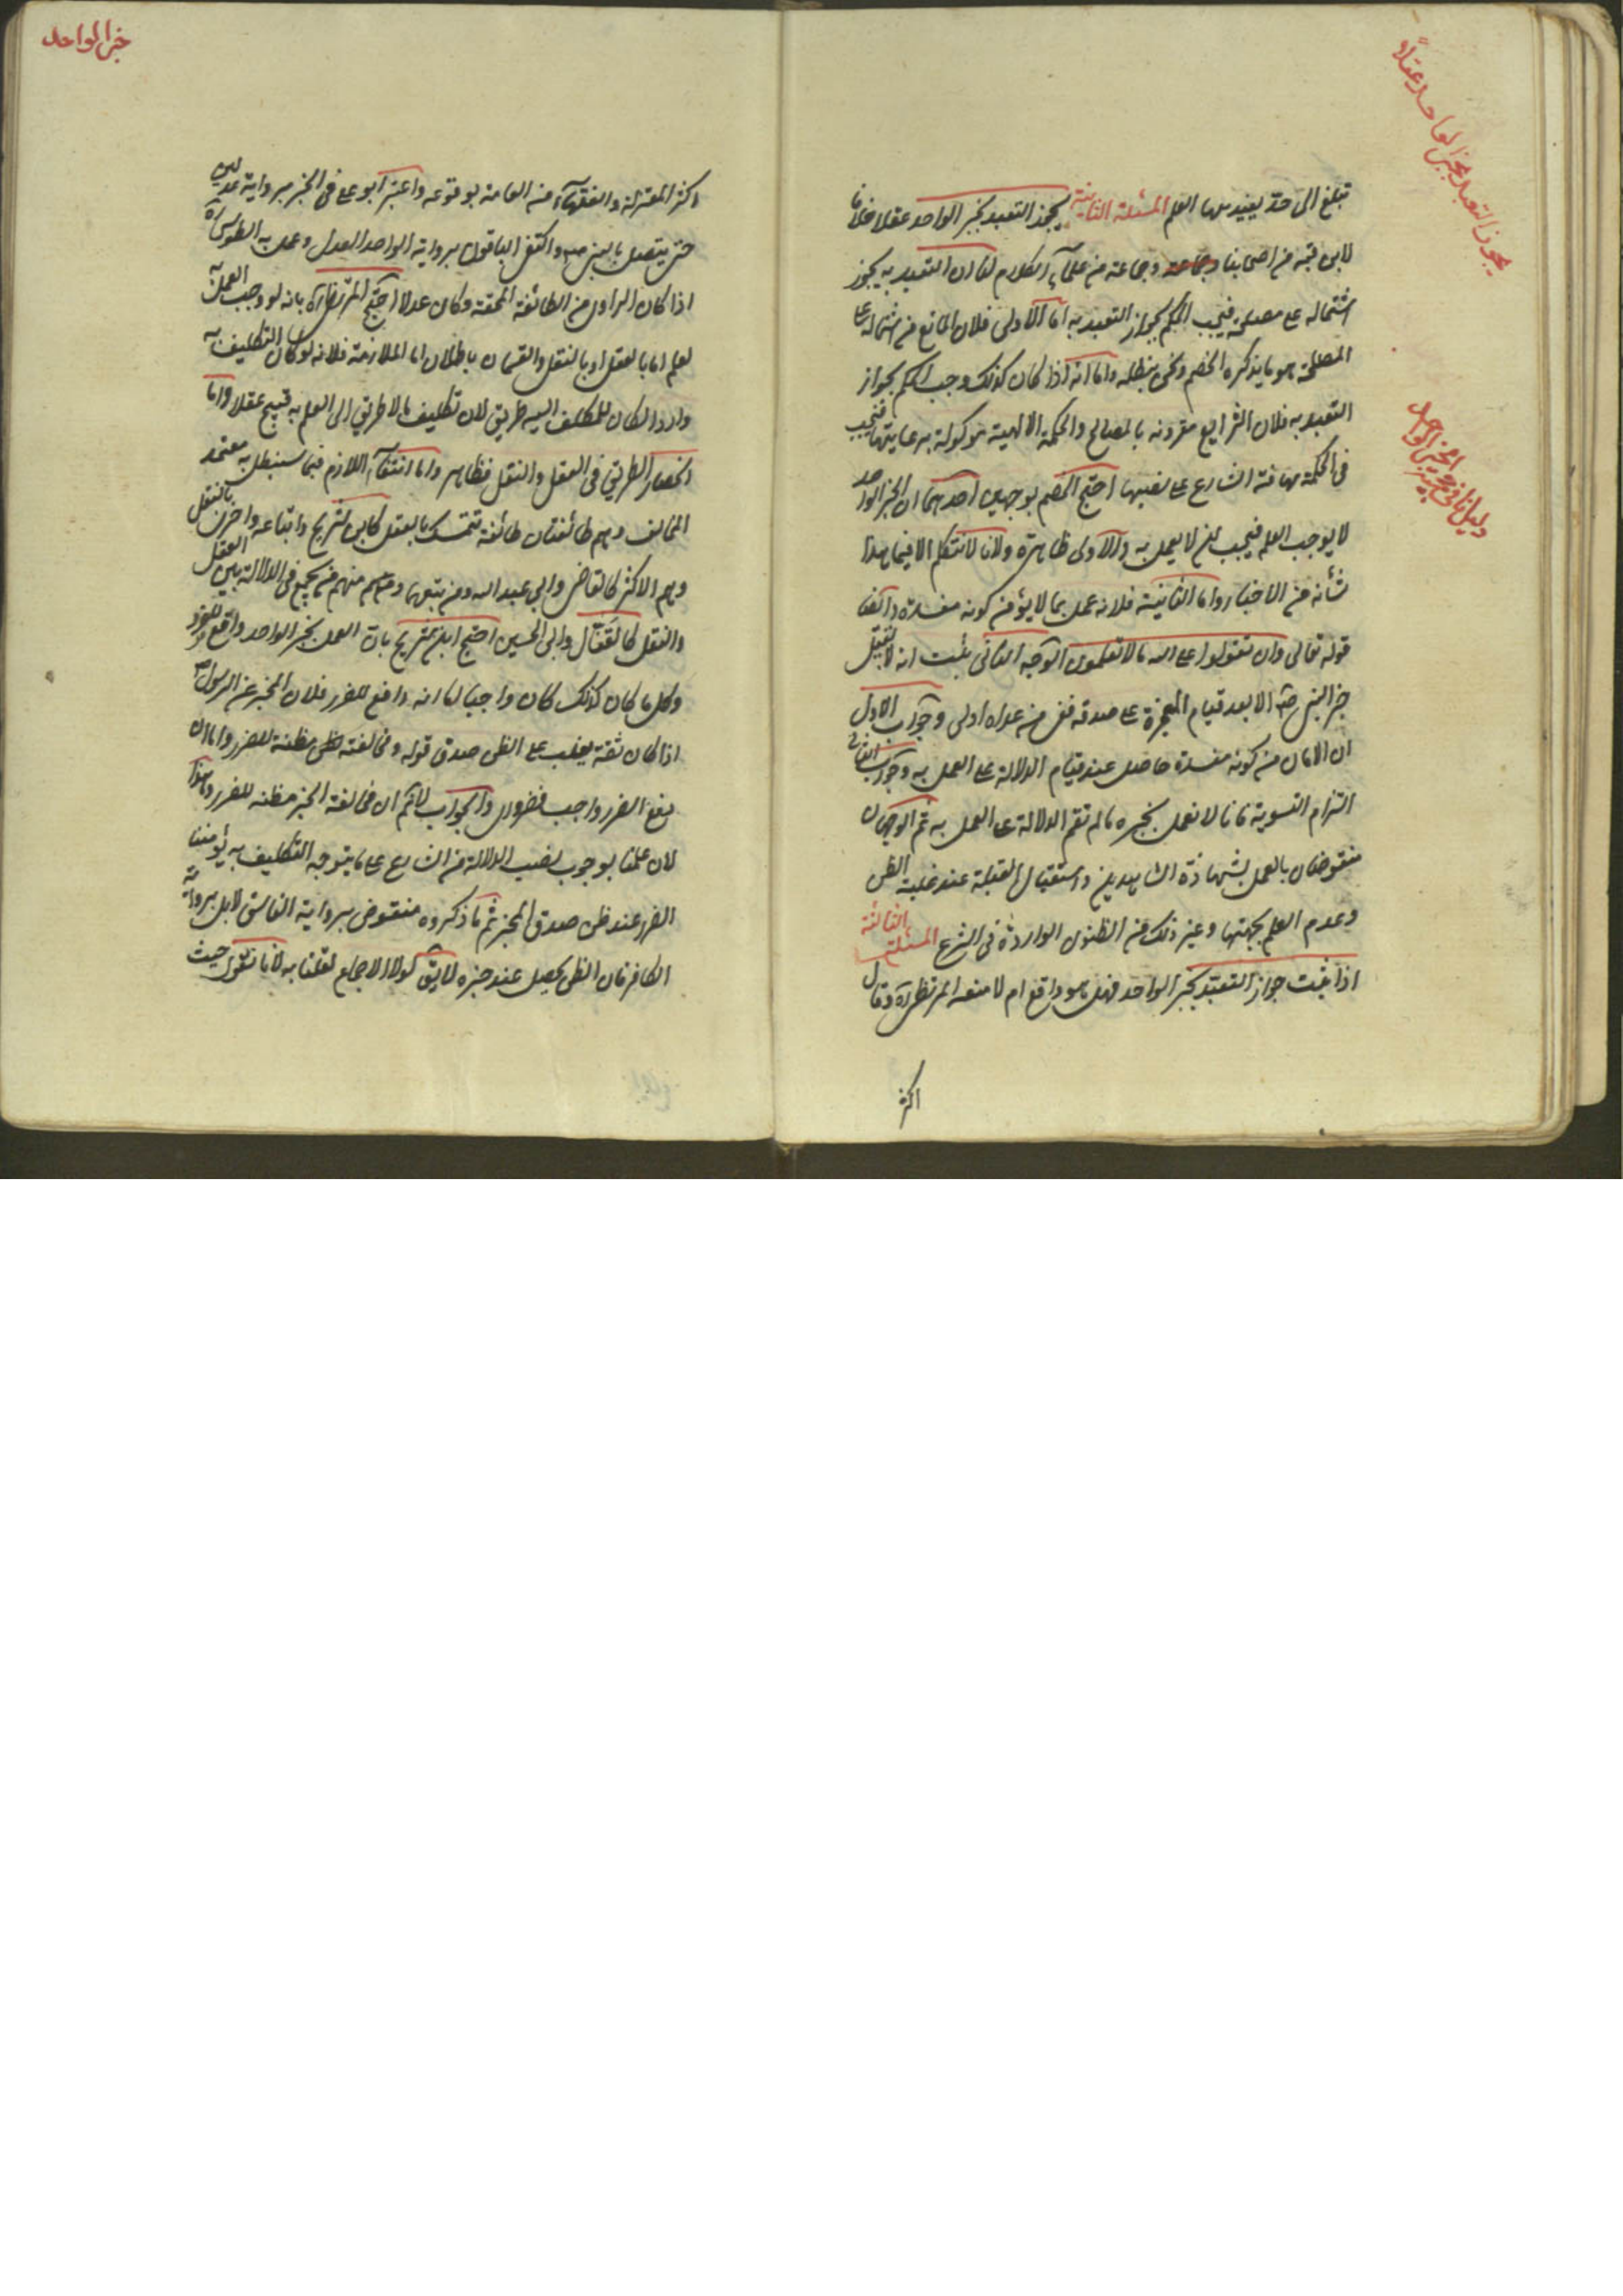 يجوز التعبد بخبر الواحد عقلاً
تبلغ الى حدّ يفيد معها العلم المسئلة الثانية يجوز التعبد بخبر الواحد عقلا خلافا
لابن قبة من اصحابنا وجماعة من علمآء الكلام لنا ان التعبد به يجوز
اشتماله على مصلحة فيجب الحكم بجواز التعبد به اما الاولى فلان المانع من اشتماله على
المصلحة هو ما يذكره الخصم ونحن نبطله واما انه اذا كان كذلك وجب الحكم بجواز
التعبد به فلان الشرايع مقرونه بالمصالح والحكمة الالهية موكولة برعايتها فيجب
فى الحكمة الشارع على نصبها احتج الخصم بوجهين احدهما ان الخبر الواحد
لا يوجب العلم فيجب ان لا يعمل به والاولى ظاهرة ولانا لا نتكلم الا فيما هذا
شأنه من الاخبار واما الثانية فلانه عمل بما لا يؤمن كونه مفسدة وايضا
قوله تعالى وان تقولوا على الله ما لا تعلمون الوجه الثانى ثبت انه لا يقبل
خبر النبى صم الا بعد قيام المعجزة على صدقه ففى من عداه اولى وجواب الاول
ان الامان من كونه مفسدة حاصل عند قيام الدلالة على العمل به وجواب الثانى
التزام التسوية فانا لا نعمل بخبره ما لم تقم الدلالة على العمل به ثم الوجهان
منقوضان بالعمل بشهادة الشاهدين واستقبال القبلة عند غلبة الظن
وعدم العلم بجهتها وغير ذلك من الظنون الواردة فى الشرع المسئلة الثالثة
اذا ثبت جواز التعبّد بخبر الواحد فهل هو واقع ام لا منعه المرتضى ره وقال
اكثر
خبر الواحد
اكثر المعتزلة والفقهآء من العامة بوقوعه واعتبر ابو على فى الخبر رواية عدلين
حتى يتصل بالنبى صم واكتفى الباقون برواية الواحد العدل وعمل به الطوسى ره
اذا كان الراوى من الطائفة المحقة وكان عدلا احتج المرتضى ره بانه لو وجب العمل به
لعلم اما بالعقل او بالنقل والقسمان باطلان اما الملازمة فلانه لو كان التكليف به
واردا لكان للمكلف اليه طريق لان تكليف ما لا طريق الى العلم به قبيح عقلا واما
انحصار الطريق فى العقل والنقل فظاهر واما انتفآء اللازم فبما سنبطل به معتمد
المخالف وهم طائفتان طائفة تتمسك بالعقل كابن شريح واتباعه واخرى بالنقل
وهم الاكثر كالقاضى وابى عبد الله ومن تبعهما ومنهم من يجمع فى الدلالة بين العقل
والنقل كالقفال وابى الحسين احتج ابن شريح بان العمل بخبر الواحد دافع للضرر
وكل ما كان كذلك كان واجبا اما انه دافع للضرر فلان المخبر عن الرسول ص
اذا كان ثقة يغلب على الظن صدق قوله ومخالفته مظنة للضرر واما ان
دفع الضرر واجب فضرورى والجواب لا نم ان فى مخالفة الخبر مظنه للضرر وهذا
لان علمنا بوجوب نصب الدلالة من الشارع على ما يتوجه التكليف به يؤمننا
الضرر عند ظن صدق المخبر ثم ما ذكروه منقوض برواية الفاسق لا بل برواية
الكافر فان الظن يحصل عند خبره لا يق لولا الاجماع لقلنا به لانا نقول حيث